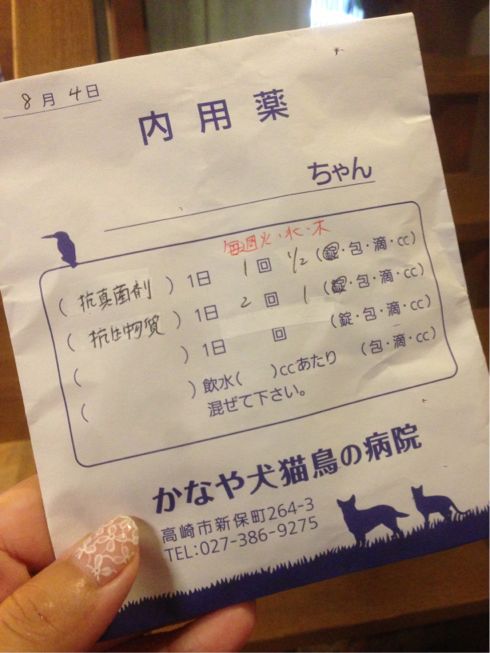 8月4日
内用薬
ちゃん
毎週火・水・木
(抗真菌剤)1日 1回 1/2(錠・包・滴・cc)
(抗生物質)1日 2回 1(錠・包・滴・cc)
( )1日 回 (錠・包・滴・cc)
( )飲水( )ccあたり (包・滴・cc)
混ぜて下さい。
かなや犬猫鳥の病院
高崎市新保町264-3
TEL:027-386-9275